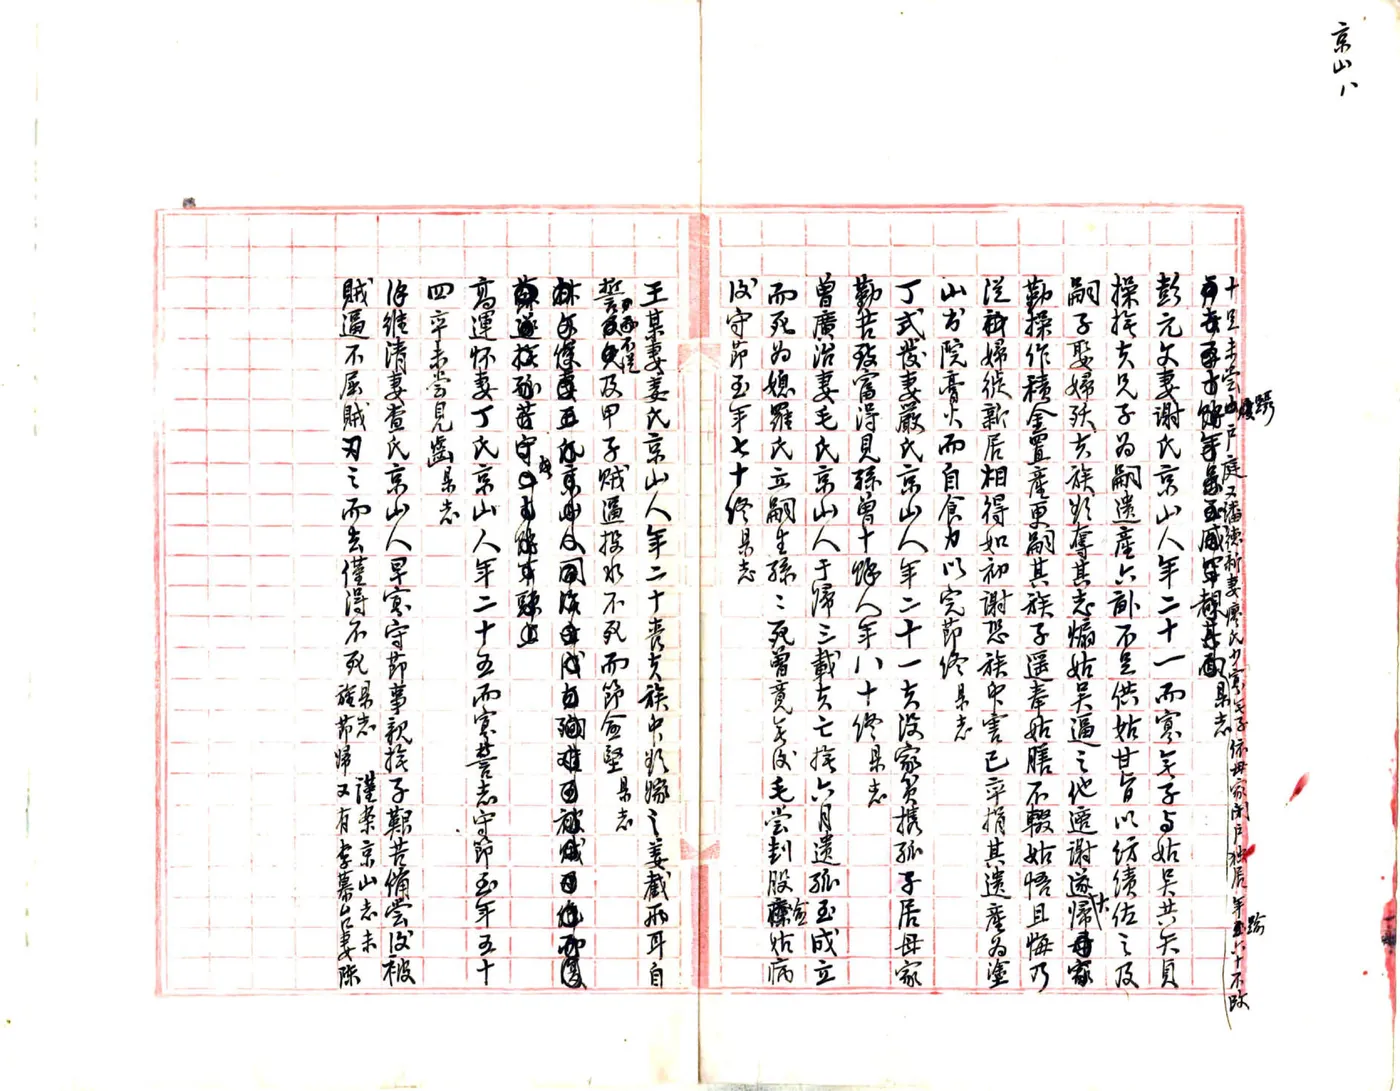 京山八
十足未嘗踰戶庭又潘德新妻廖氏少寡無子依母家閉戶独居年踰六十不改
縣志
彭元文妻謝氏京山人年二十一而寡無子与姑吴共矢貞
操撫夫兄子為嗣遺產六畝不足供姑甘旨以紡績佐之及
嗣子娶婦殀夫族欲奪其志煽姑吴逼之他適謝遂大歸
勤操作積金置產更嗣其族子遥奉姑膳不輟姑悟且悔乃
從婦徙新居相得如初謝恐族中害己卒捐其遺產為塗
山书院膏火而自食力以完節終縣志
丁式發妻嚴氏京山人年二十一夫没家貧携孤子居母家
勤苦致富得見孫曾十餘人年八十終縣志
曾廣治妻毛氏京山人于歸三載夫亡撫六月遺孤至成立
而死為媳羅氏立嗣生孫〻死曾竟無後毛嘗刲股愈姑病
後守節至年七十終縣志
王某妻姜氏京山人年二十喪夫族中欲嫁之姜截兩耳自
誓不從及甲子賊逼投水不死而節愈堅縣志
高運怀妻丁氏京山人年二十五而寡誓志守節至年五十
四卒未嘗見齒縣志
徐維清妻查氏京山人早寡守節事親撫子艱苦備嘗後被
賊逼不屈賊刃之而去僅得不死縣志謹案京山志未
旌節婦又有李慕皋妻陈